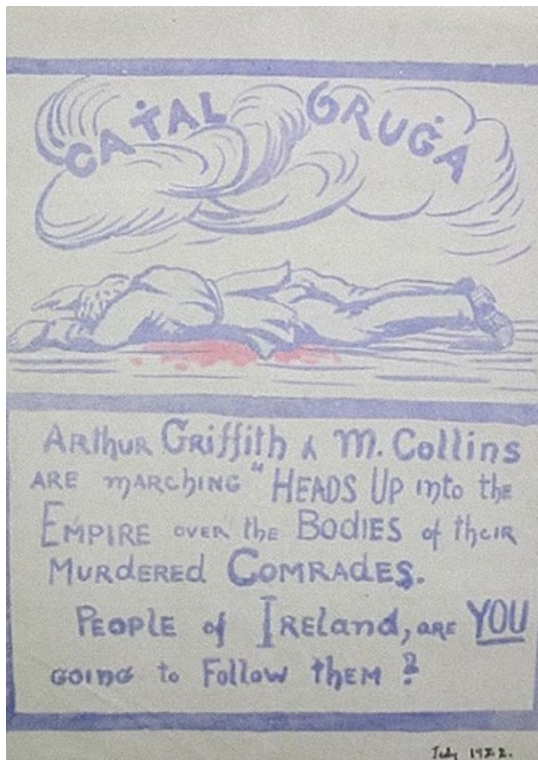 CAṪAL ḂRUĠA
ARThUR GRiffiTh & M. Collins
ARE mARChiNG "HEADS UP into the
EMPIRE OVER the BODIES of thEIR
MURdERED COMRADES.
PEOPlE of IREland, ARE YOU
GOiNG to Follow thEM ?
July 1922.